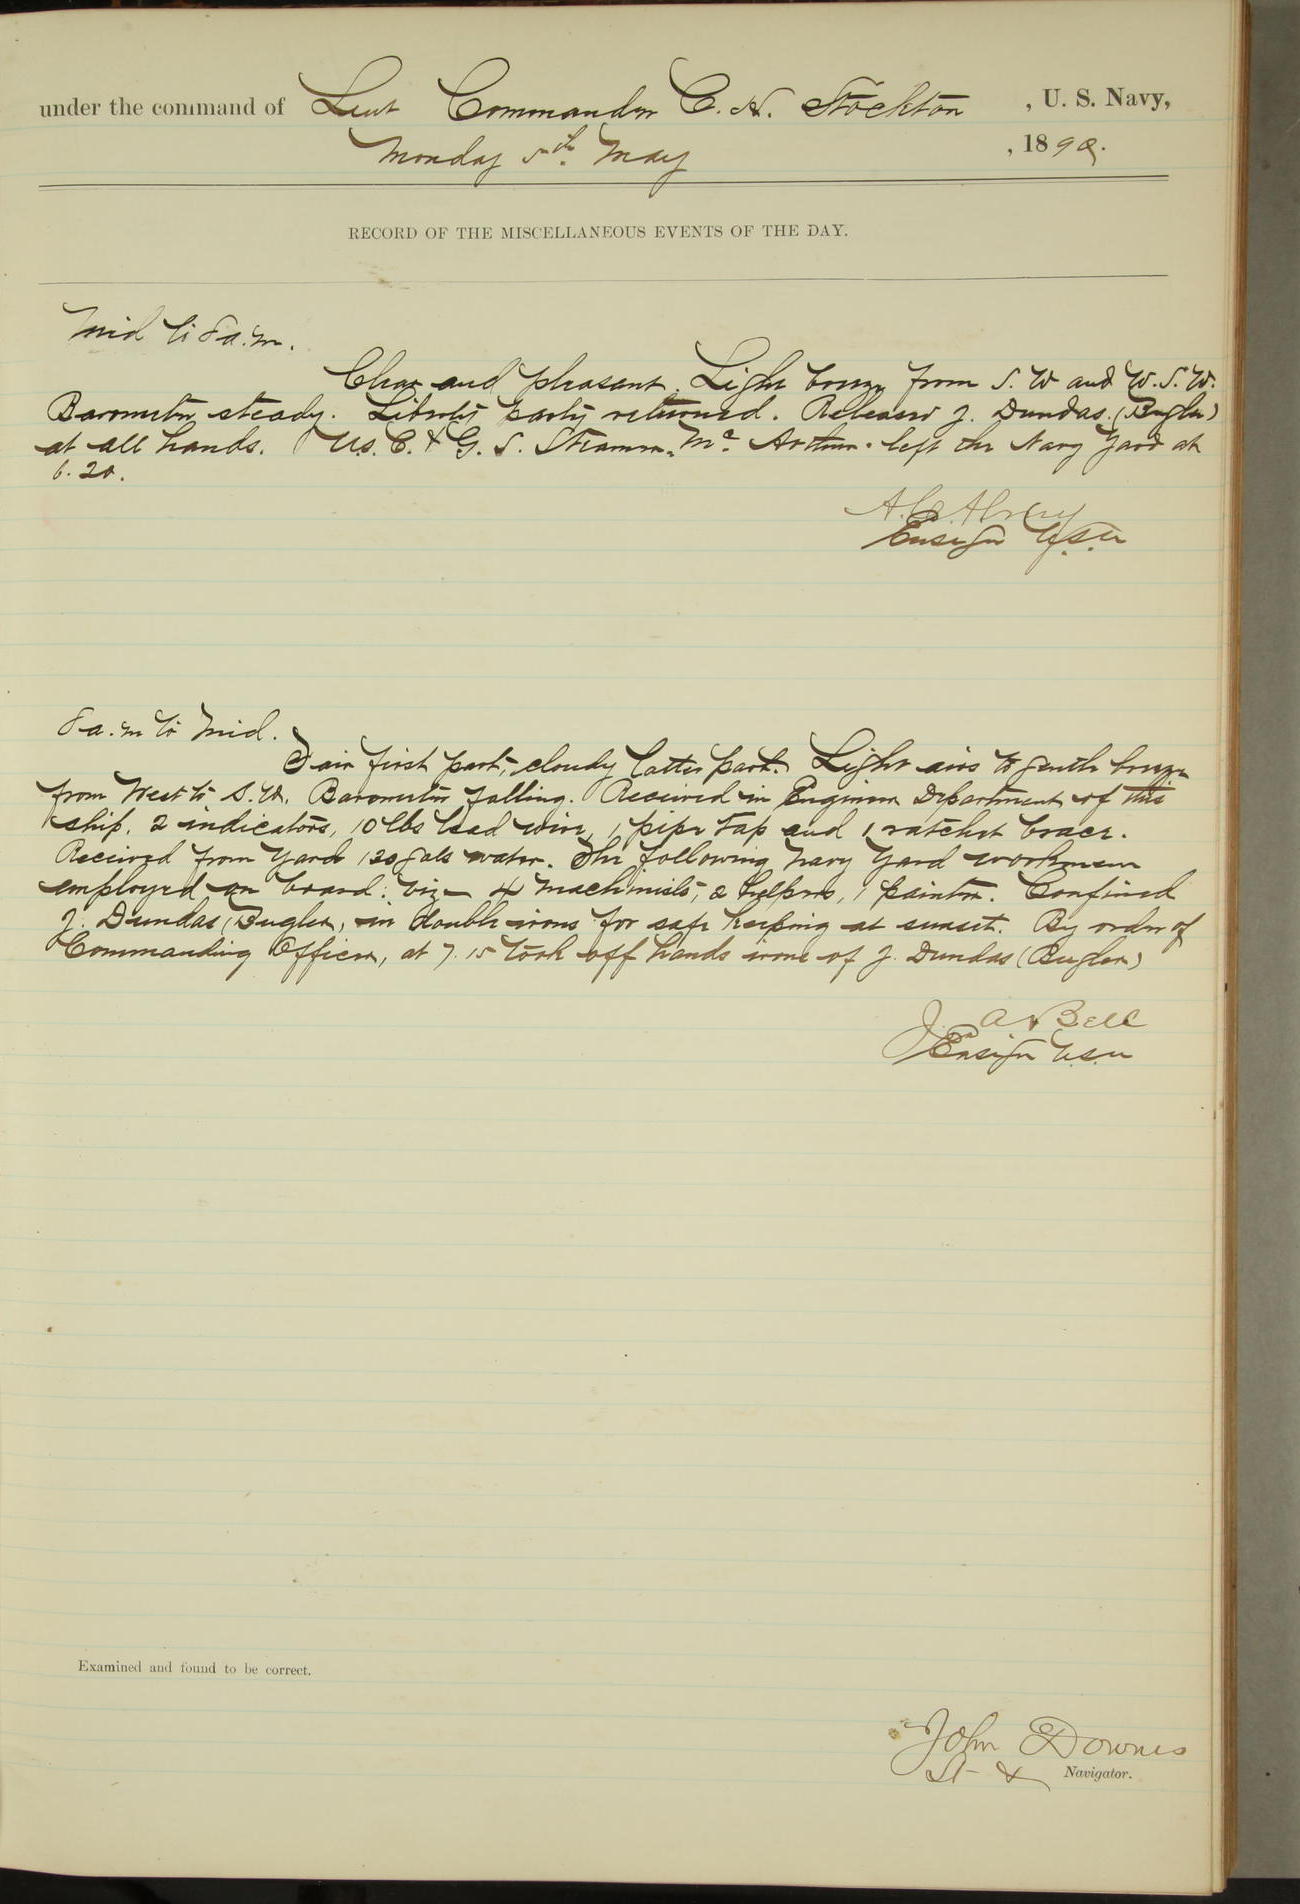 under the command of Lieut Commander C. H. Stockton , U. S. Navy,
Monday 5th. May , 1890.
RECORD OF THE MISCELLANEOUS EVENTS OF THE DAY.
Mid to 8 a.m.
Clear and pleasant. Light breeze from S. W and W. S. W.
Barometer steady. Liberty party returned. Released J. Dundas. (Bugler)
at all hands. U.S. C. & G. S. Steamer Mc Arthur left the Navy Yard at
6.20.
Ensign U.S.N.
8 a.m to Mid.
Fair first part, cloudy latter part. Light airs to gentle breeze
from West to S.W. Barometer falling. Received in Engineer Department of this
ship, 2 indicators, 10 lbs lead wire, 1 pipe tap and 1 ratchet brace.
Received from Yard 120 gals water. The following Navy Yard workmen
employed on board: viz- 4 machinists, 2 helpers, 1 painter. Confined
J. Dundas (Bugler, in double irons for safe keeping at sunset. By order of
Commanding Officer, at 7.15 took off hands irons of J. Dundas (Bugler)
J. A. Bell
Ensign U.S.N
Examined and found to be correct.
John Downes
Lt & Navigator.